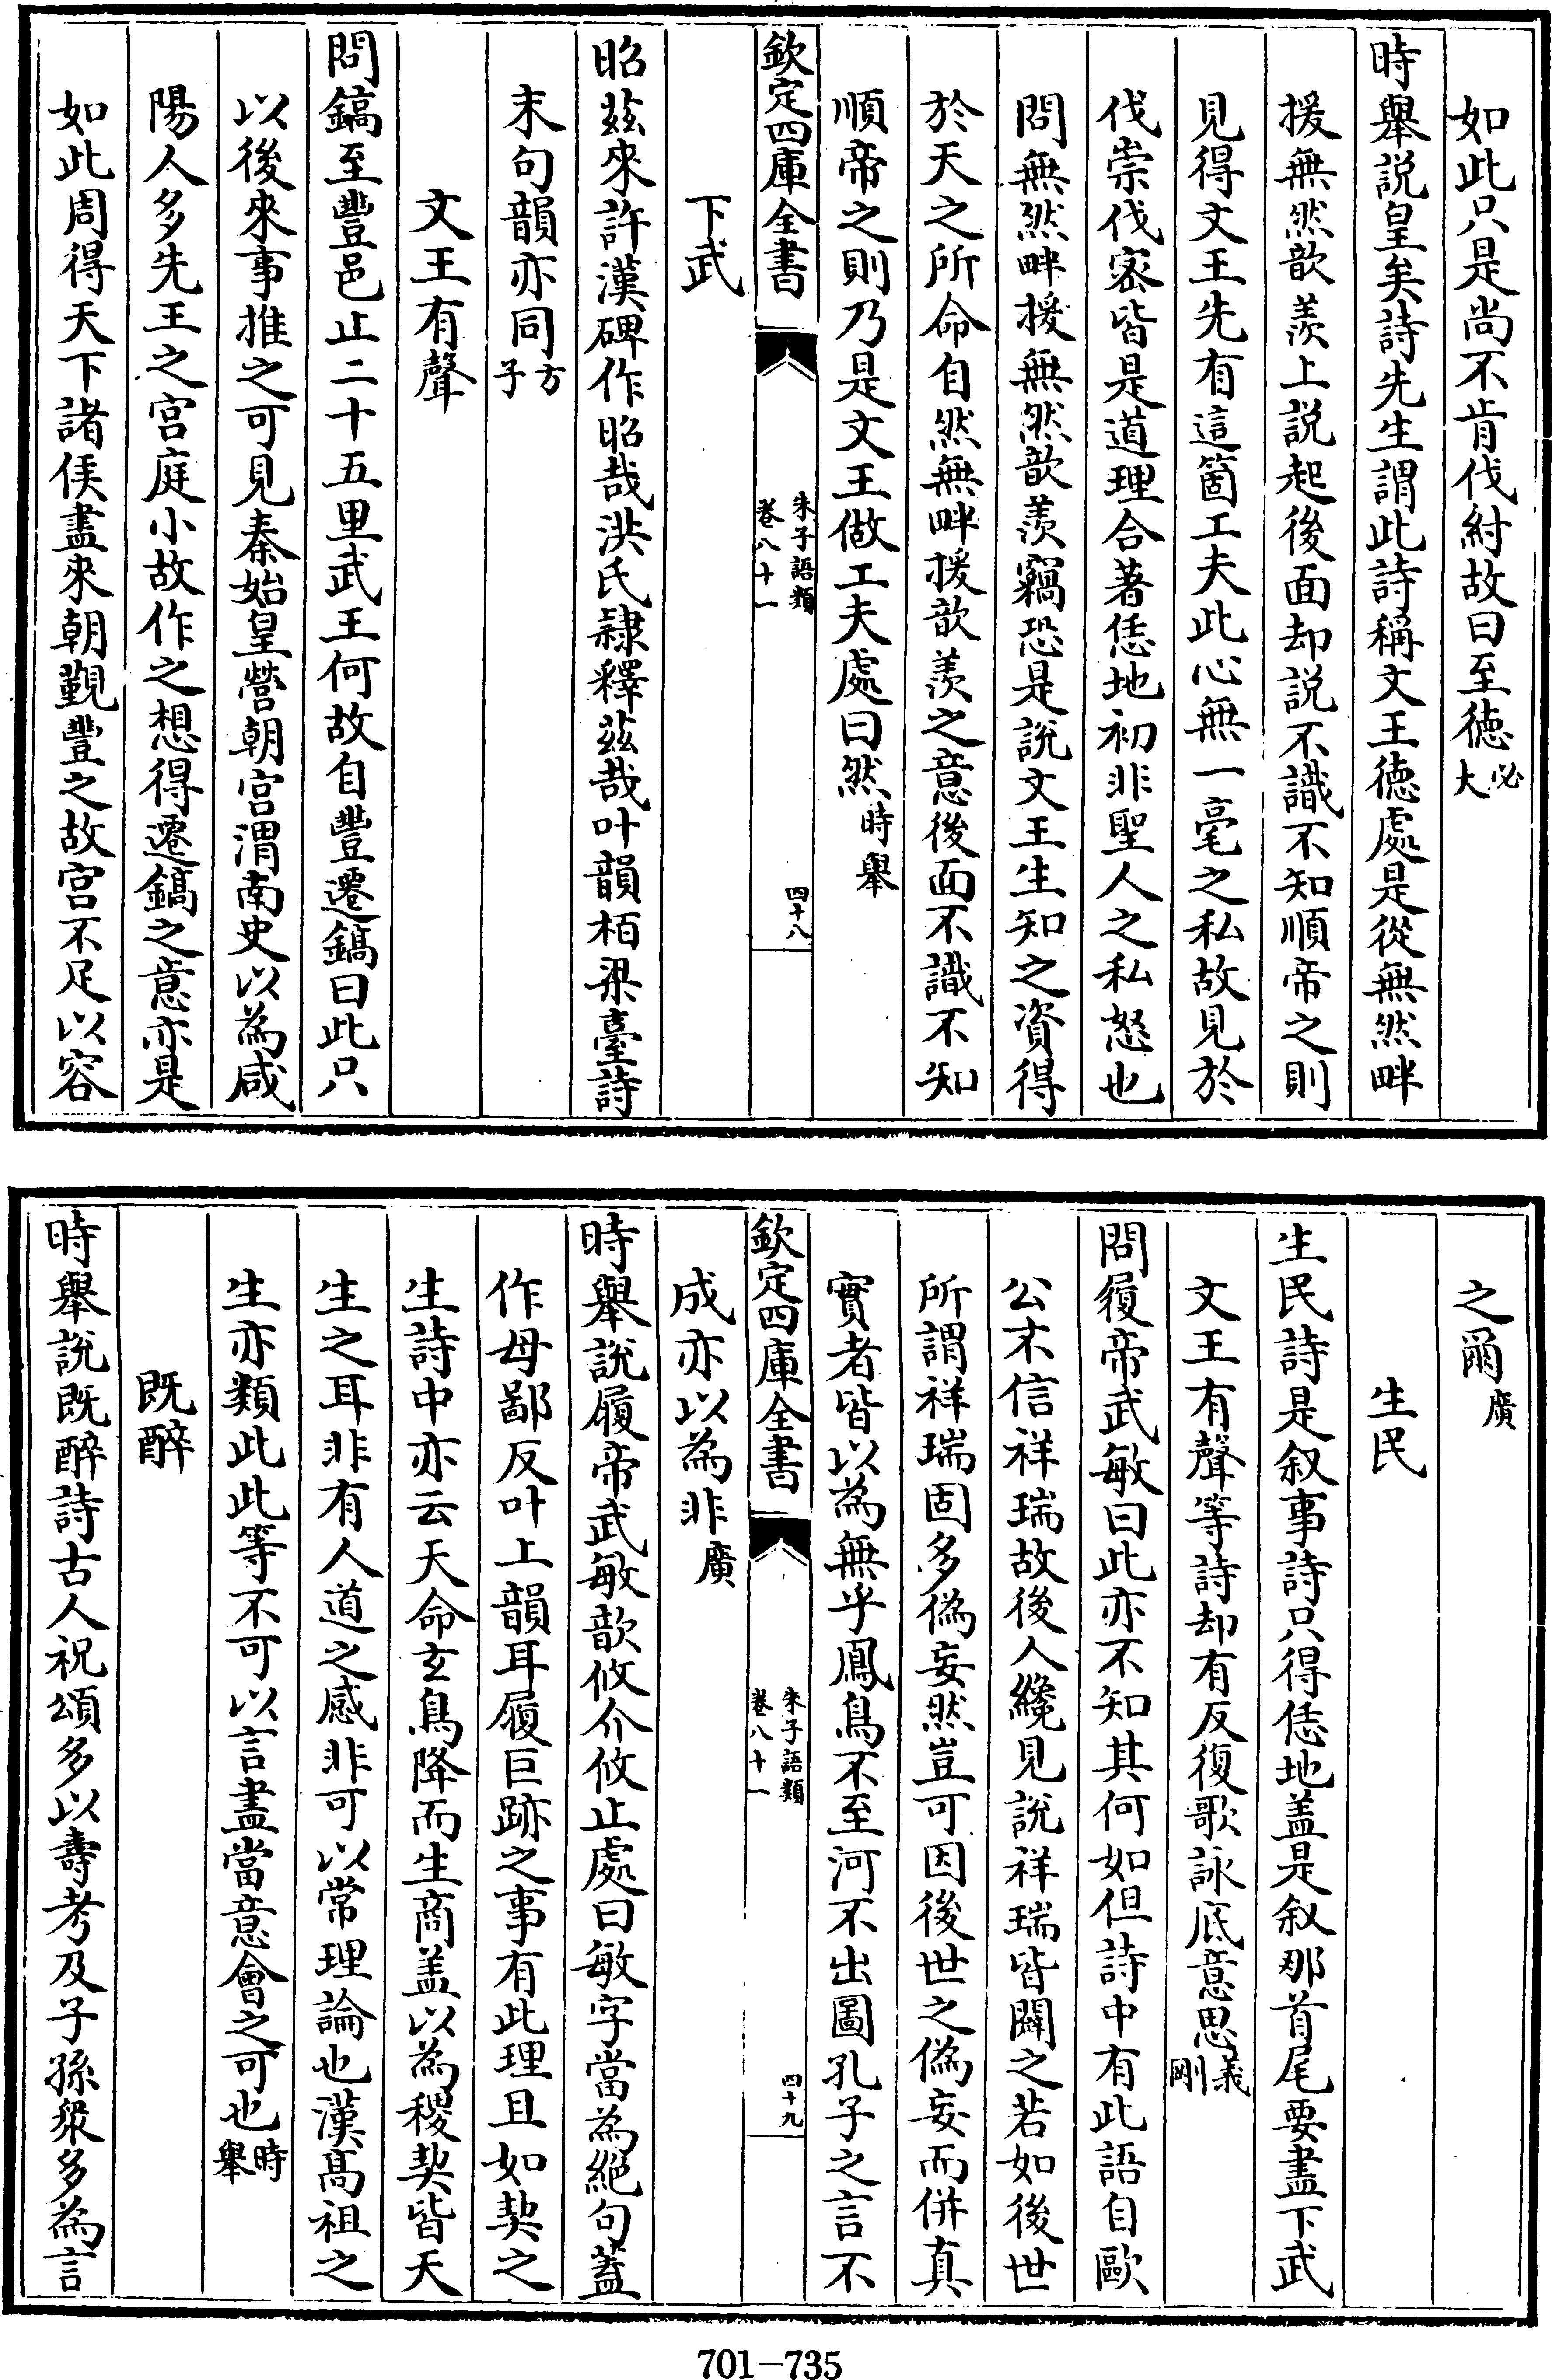 如此只是尚不肯伐紂故曰至徳必大
時舉説皇矣詩先生謂此詩稱文王徳處是從無然畔
援無然歆羨上説起後面却説不識不知順帝之則
見得文王先有這箇工夫此心無一毫之私故見於
伐崇伐宻皆是道理合著恁地初非聖人之私怒也
問無然畔援無然歆羨竊恐是説文王生知之資得
於天之所命自然無畔援歆羨之意後面不識不知
順帝之則乃是文王做工夫處曰然時舉
欽定四庫全書
朱子語類
卷八十一
四十八
下武
昭兹來許漢碑作昭哉洪氏隷釋兹哉叶韻栢梁臺詩
末句韻亦同方子
文王有聲
問鎬至豐邑止二十五里武王何故自豐遷鎬曰此只
以後來事推之可見秦始皇營朝宫渭南史以為咸
陽人多先王之宫庭小故作之想得遷鎬之意亦是
如此周得天下諸侯盡來朝覲豐之故宫不足以容
之爾廣
生民
生民詩是叙事詩只得恁地盖是叙那首尾要盡下武
文王有聲等詩却有反復歌詠底意思義剛
問履帝武敏曰此亦不知其何如但詩中有此語自歐
公不信祥瑞故後人纔見説祥瑞皆闢之若如後世
所謂祥瑞固多偽妄然豈可因後世之偽妄而併真
實者皆以為無乎鳳鳥不至河不出圖孔子之言不
欽定四庫全書
朱子語類
卷八十一
四十九
成亦以為非廣
時舉説履帝武敏歆攸介攸止處曰敏字當為絶句蓋
作母鄙反叶上韻耳履巨跡之事有此理且如契之
生詩中亦云天命玄鳥降而生商盖以為稷契皆天
生之耳非有人道之感非可以常理論也漢髙祖之
生亦類此此等不可以言盡當意會之可也時舉
既醉
時舉説既醉詩古人祝頌多以壽考及子孫衆多為言
701—735